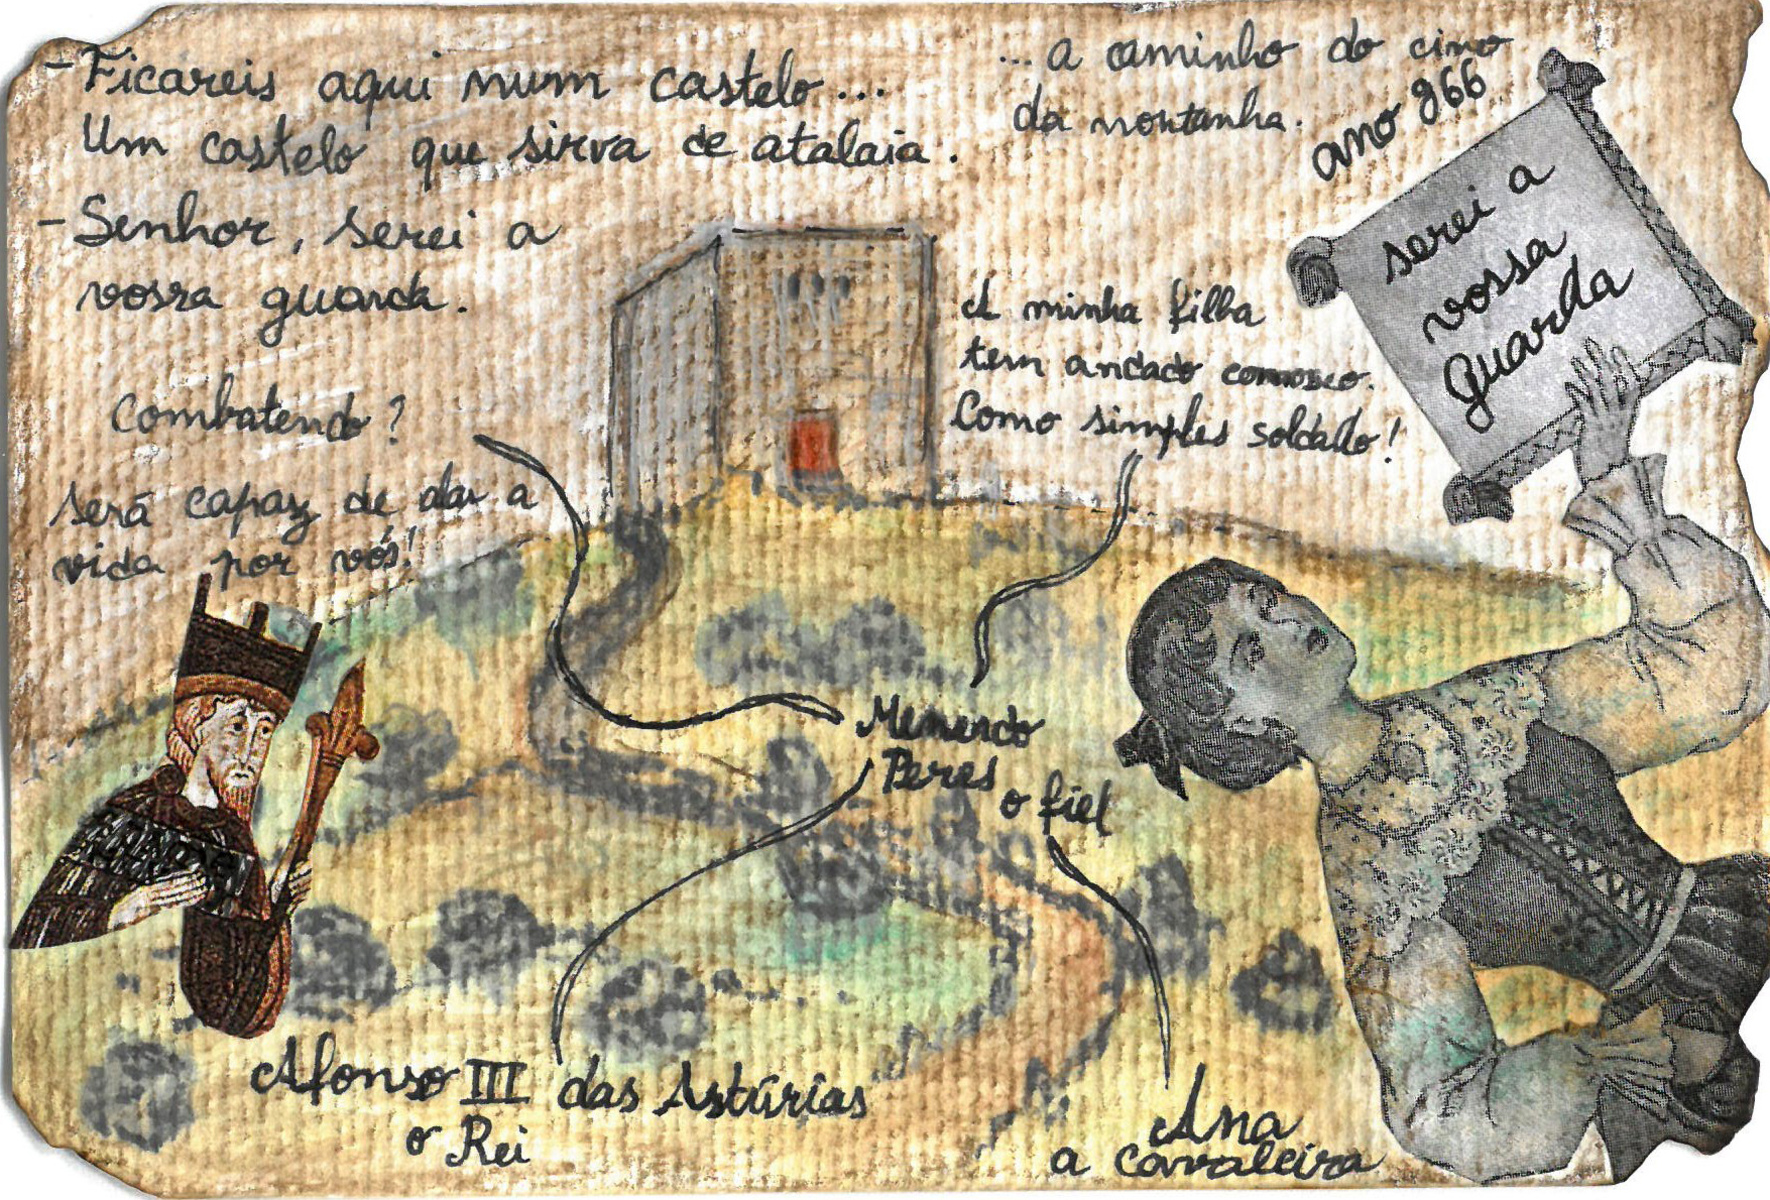 - Ficareis aqui num castelo...
Um castelo que sirva de atalaia.
- Senhor, serei a
vossa guarda.
... a caminho do cimo
da montanha.
ano 866
serei a
vossa
guarda
A minha filha
tem andado connosco.
Como simples soldado!
Combatendo?
será capaz de dar a
vida por vós!
Memendo
Peres
o fiel
Afonso III das Astúrias
o Rei
Ana
a cavaleira